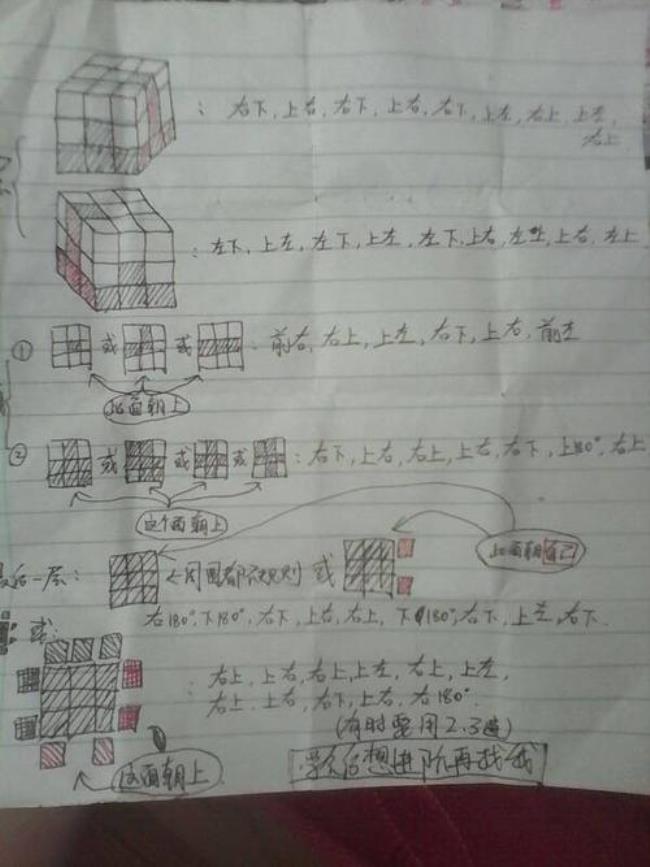 : 右下, 上右, 右下, 上右, 右下, 上左, 右上, 上左,
右上
: 左下, 上左, 左下, 上左, 左下, 上右, 左上, 上右, 左上
① 或 或 : 前右, 右上, 上左, 右下, 上右, 前左
此面朝上
② 或 或 或 : 右下, 上右, 右上, 上右, 右下, 上180°, 右上
这个面朝上
后一层: ←周围都无规则 或 此面朝自己
右180°, 下180°, 右下, 上右, 右上, 下180°, 右下, 上左, 右下.
或:
: 右上, 上右, 右上, 上左, 右上, 上左,
右上, 上右, 右下, 上右, 右180°.
(有时需用2.3遍)
这面朝上
学会后想进阶再找我